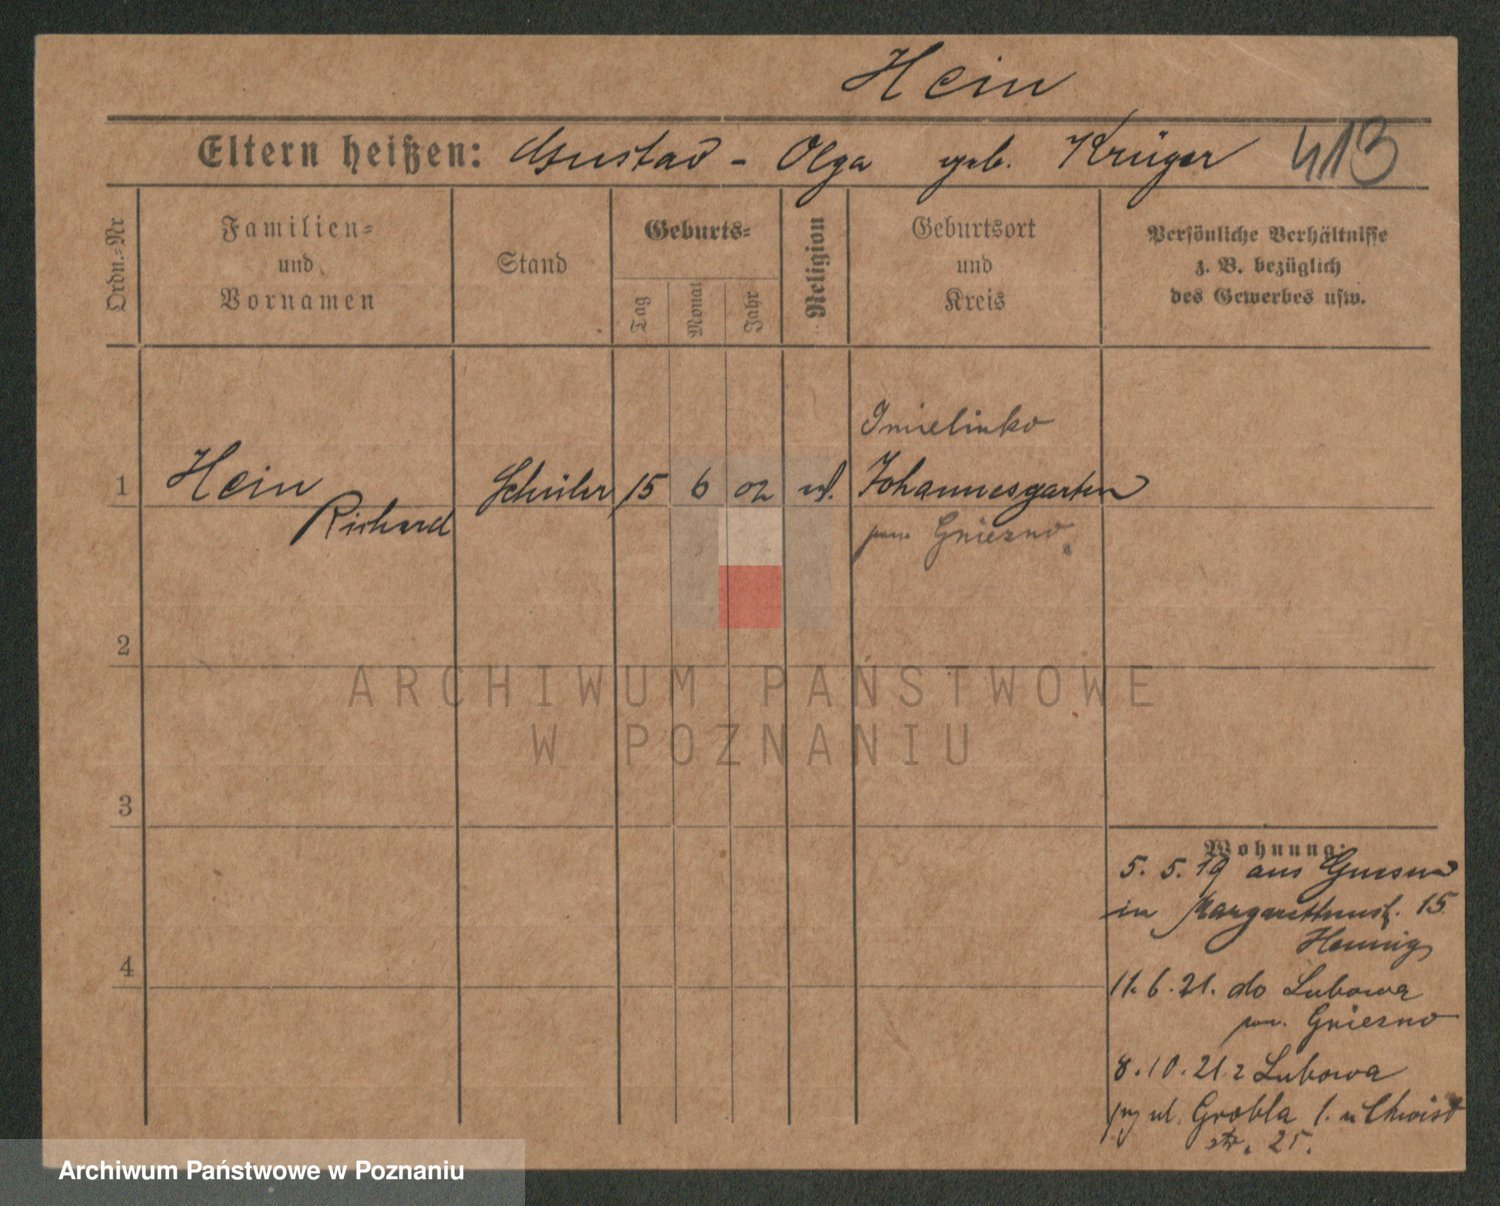 Hein
Eltern heißen: Gustav - Olga geb. Krüger 413
Ordn.=Nr
Familien=
und
Vornamen
Stand
Geburts=
Tag
Monat
Jahr
Religion
Geburtsort
und
Kreis
Persönliche Verhältnisse
z. B. bezüglich
des Gewerbes usw.
Imielinko
1 Hein Schüler 15 6 02 Johannesgarten
Richard pow. Gniezno
2
3
4
Wohnung:
5. 5. 19 aus Gnesen
in Margarethenst. 15
Hennig
11. 6. 21. do Lubowa
pow. Gniezno
8. 10. 21 z Lubowa
ul. Grobla 1. u
str. 25.
ARCHIWUM PAŃSTWOWE
W POZNANIU
Archiwum Państwowe w Poznaniu